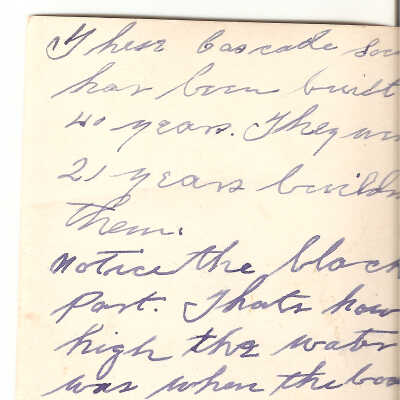 These Cascade
has been built
40 years. They
21 years
them.
Notice the black
Part. Thats how
high the water
was when the